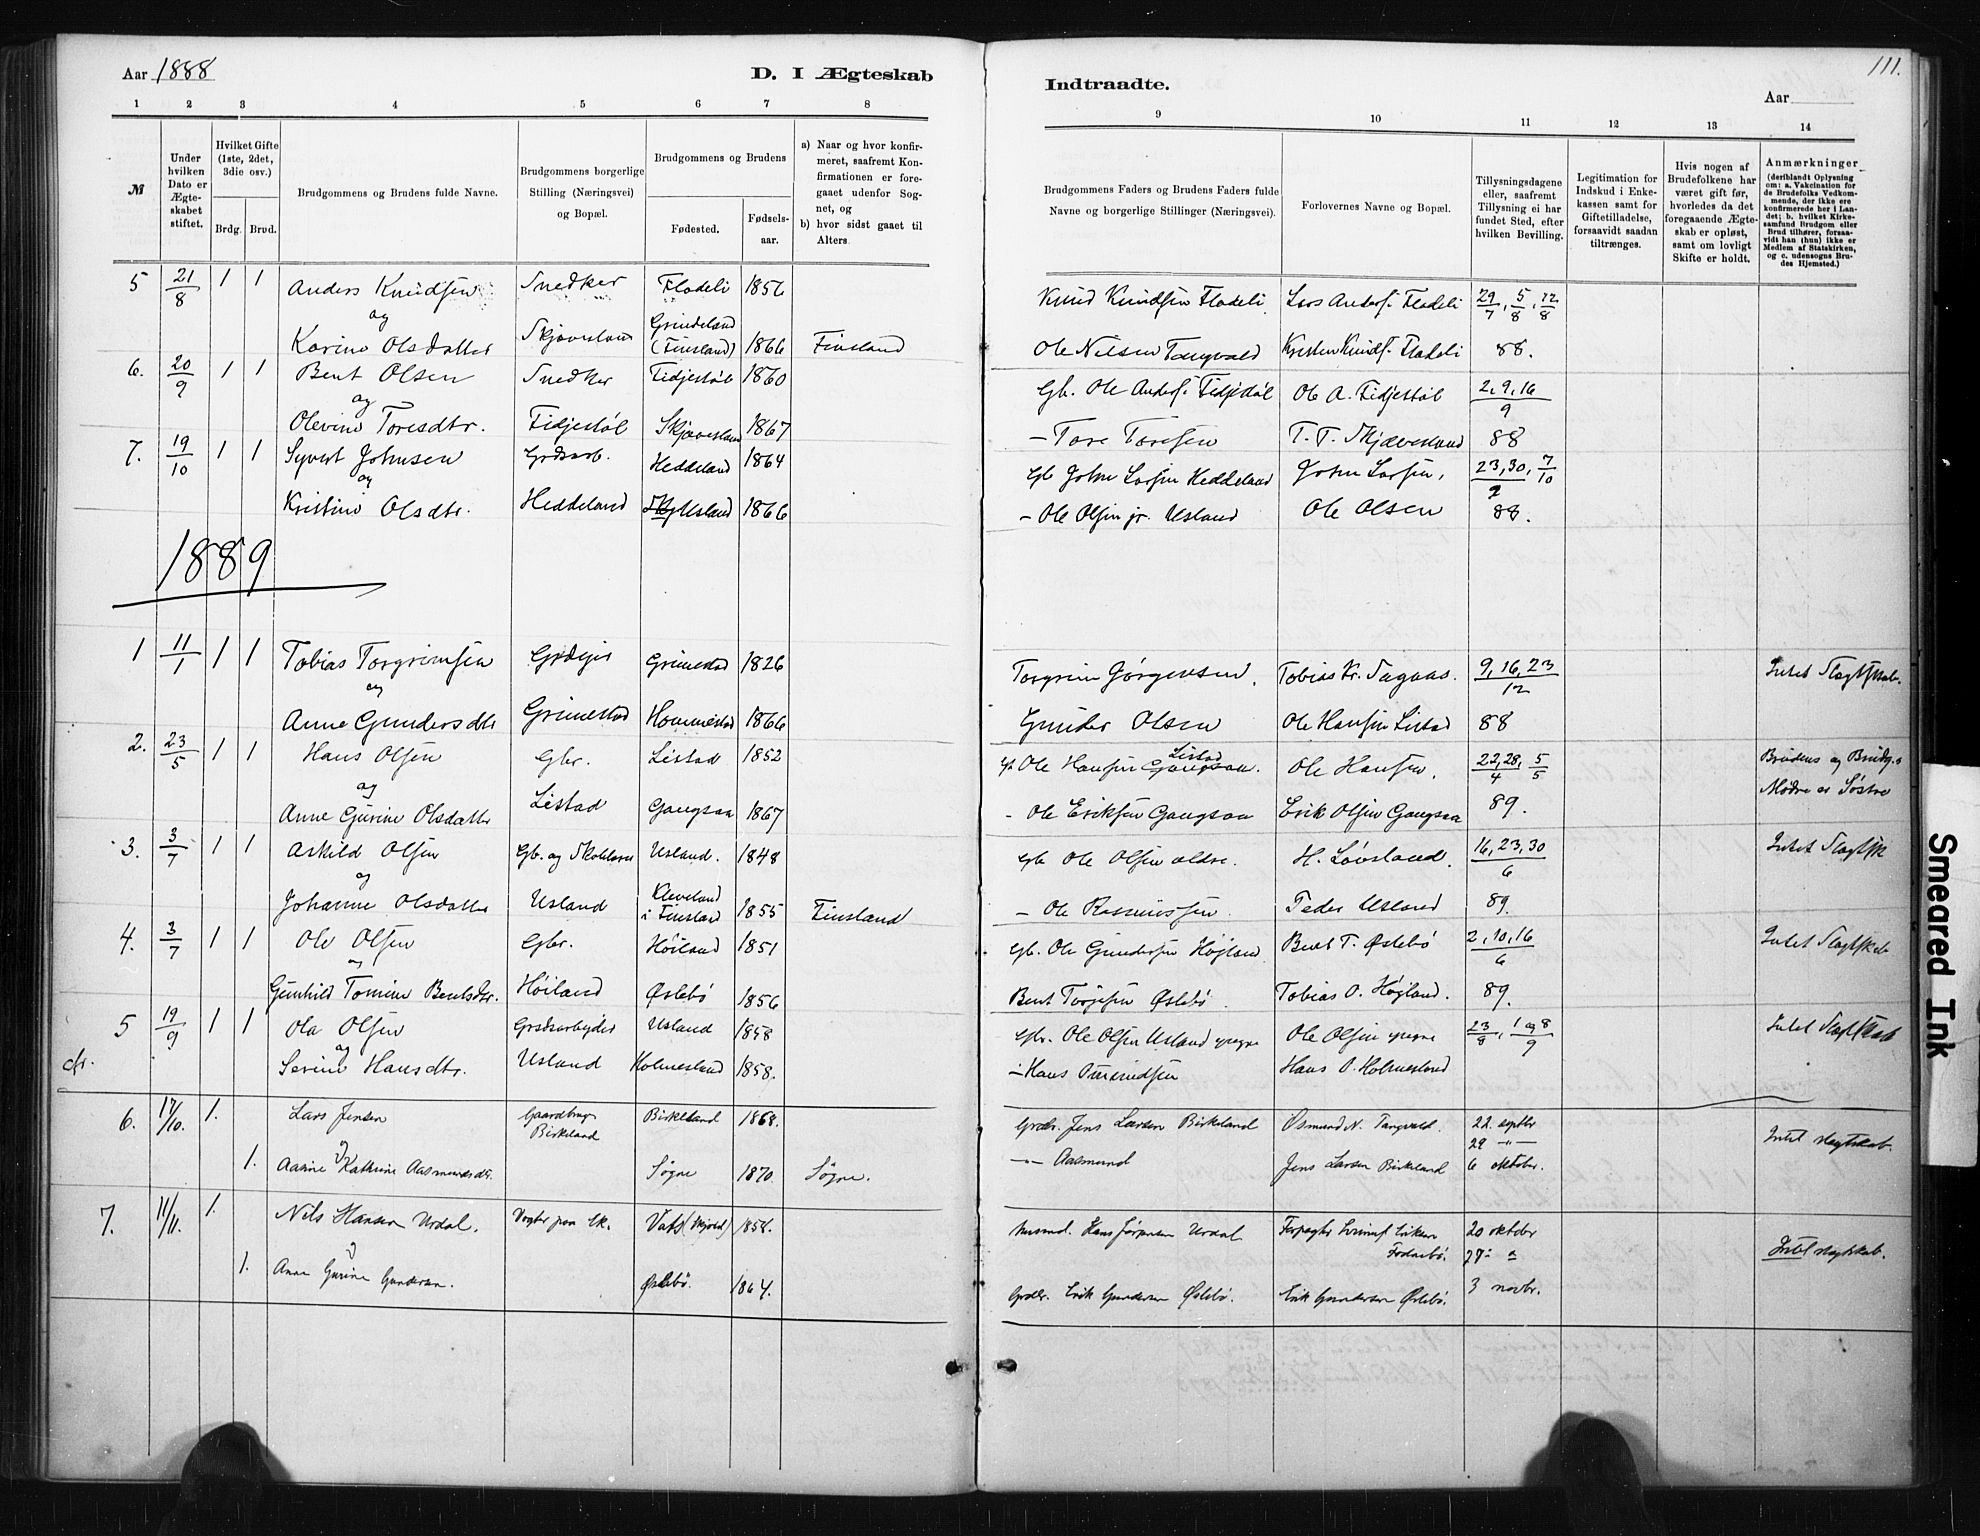 Aar 1888
D. I Ægteskab
Indtraadte.
111.
Aar
1 2 3 4 5 6 7 8
9 10 11 12 13 14
№
Under hvilken Dato er Ægteskabet stiftet.
Hvilket Gifte (1ste, 2det, 3die osv.)
Brdg. Brud.
Brudgommens og Brudens fulde Navne.
Brudgommens borgerlige Stilling (Næringsvei) og Bopæl.
Brudgommens og Brudens
Fødested.
Fødselsaar.
a) Naar og hvor konfirmeret, saafremt Konfirmationen er foregaaet udenfor Sognet, og
b) hvor sidst gaaet til Alters.
Brudgommens Faders og Brudens Faders fulde Navne og borgerlige Stillinger (Næringsvei).
Forlovernes Navne og Bopæl.
Tillysningsdagene eller, saafremt Tillysning ei har fundet Sted, efter hvilken Bevilling.
Legitimation for Indskud i Enkekassen samt for Giftetilladelse, forsaavidt saadan tiltrænges.
Hvis nogen af Brudefolkene har været gift før, hvorledes da det foregaaende Ægteskab er opløst, samt om lovligt Skifte er holdt.
Anmærkninger (deriblandt Oplysning om: a. Vakcination for de Brudefolks Vedkommende, der ikke ere konfirmerede her i Landet; b. hvilket Kirkesamfund Brudgom eller Brud tilhører, forsaavidt han (hun) ikke er Medlem af Statskirken, og c. udensogns Brudes Hjemsted.)
5 21/8 1 1 Anders Knudsen Snedker Flodeli 1856 Knud Knudsen Flodeli. Lars Anders. Flodeli 29/7, 5/8, 12/8
og
Karine Olsdatter Skjævesland Grindeland (Finsland) 1866 Finsland Ole Nilsen Tangvald Kristen Knuds. Flodeli 88.
6. 20/9 1 1 Bent Olsen Snedker Fidjestøl 1860 Gb. Ole Anders. Fidjestøl Ole A. Fidjestøl 2, 9, 16/9
og
Olevine Toresdtr. Fidjestøl Skjævesland 1867 - Tore Toresen T. T. Skjævesland 88
7. 19/10 1 1 Syvert Johnsen Grdsarb. Heddeland 1864 Gb John Larsen Heddeland John Larsen, 23, 30/9, 7/10
og
Kristine Olsdtr. Heddeland Usland 1866 - Ole Olsen jr. Usland Ole Olsen 88.
1889
1 11/1 1 1 Tobias Torgrimsen Grdejer Grimestad 1826 Torgrim Jørgensen. Tobias Kr. Sagaas. 9, 16, 23/12 Intet Slagtskab.
og
Anne Gundersdtr Grimestad Hommestad 1866 Gunder Olsen Ole Hansen Listad 88
2. 23/5 1 1 Hans Olsen Gbr. Listad 1852 Ole Hansen Listad Gangsaa. Ole Hansen. 22, 28/4, 5/5 Brudens og Brudg.s
og
Anne Gurine Olsdatter Listad Gangsaa 1867 - Ole Eriksen Gangsaa Erik Olsen Gangsaa 89. Mødre er Søstre
3. 3/7 1 1 Askild Olsen Gb. og Skolelærer Usland. 1848 Gb Ole Olsen ældre. H. Løvsland. 16, 23, 30/6 Intet Slagtsk
og
Johanne Olsdatter Usland Kleveland i Finsland 1855 Finsland - Ole Rasmussen Peder Usland 89.
4. 3/7 1 1 Ole Olsen Gbr. Høiland 1851 Gb. Ole Gundersen Højland Bent T. Øslebø 2, 10, 16/6 Intet Slagtskab
og
Gunhild Tomine Bentsdtr. Høiland Øslebø 1856 Bent Torjesen Øslebø. Tobias O. Høgland. 89.
5 19/9 1 1 Ola Olsen Grdsarbejder Usland 1858 Gbr. Ole Olsen Usland yngre Ole Olsen yngre 23/8, 1 og 8/9 Intet Slagtskab
og
Serine Hansdtr. Usland Holmesland 1858. - Hans Omundsen Hans O. Holmesland
6. 17/10. 1. Lars Jensen Gaardbrug. Birkeland Birkeland 1868. Grdbr. Jens Larsen Birkeland Osmund N. Tangvald. 22. septbr
29 -"-
1. Aanine Kathrine Aasmundsdtr. Søgne 1870. Søgne. -"- Aasmund Jens Larsen Birkeland 6 oktober. Intet slegtskab.
7. 11/11. 1. Nils Hansen Urdal. Vats 1858. Hans Jørgensen Urdal 20 oktober
27 "
1. Anne Gurine Gundersen. Øslebø. 1864. Grdbr. Erik Gundersen Øslebø. Erik Gundersen Øslebø. 3 novbr. Intet slegtskab.
Smeared Ink